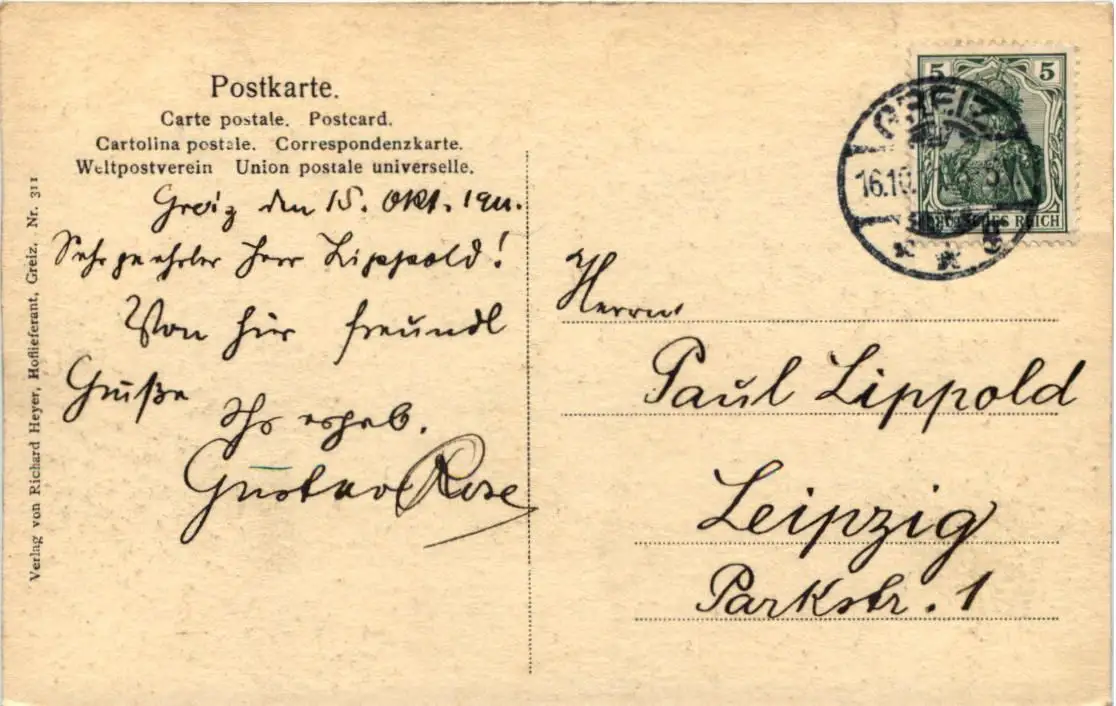 Postkarte.
Carte postale. Postcard.
Cartolina postale. Correspondenzkarte.
Weltpostverein Union postale universelle.
Greiz den 15. Okt. 1911.
Sehr geehrter Herr Lippold!
Von hier freundl
Grüße
Ihr ergeb.
Gustav Rose
Verlag von Richard Heyer, Hoflieferant, Greiz. Nr. 311
5 5
DEUTSCHES REICH
GREIZ
16.10.
Herrn
Paul Lippold
Leipzig
Parkstr. 1